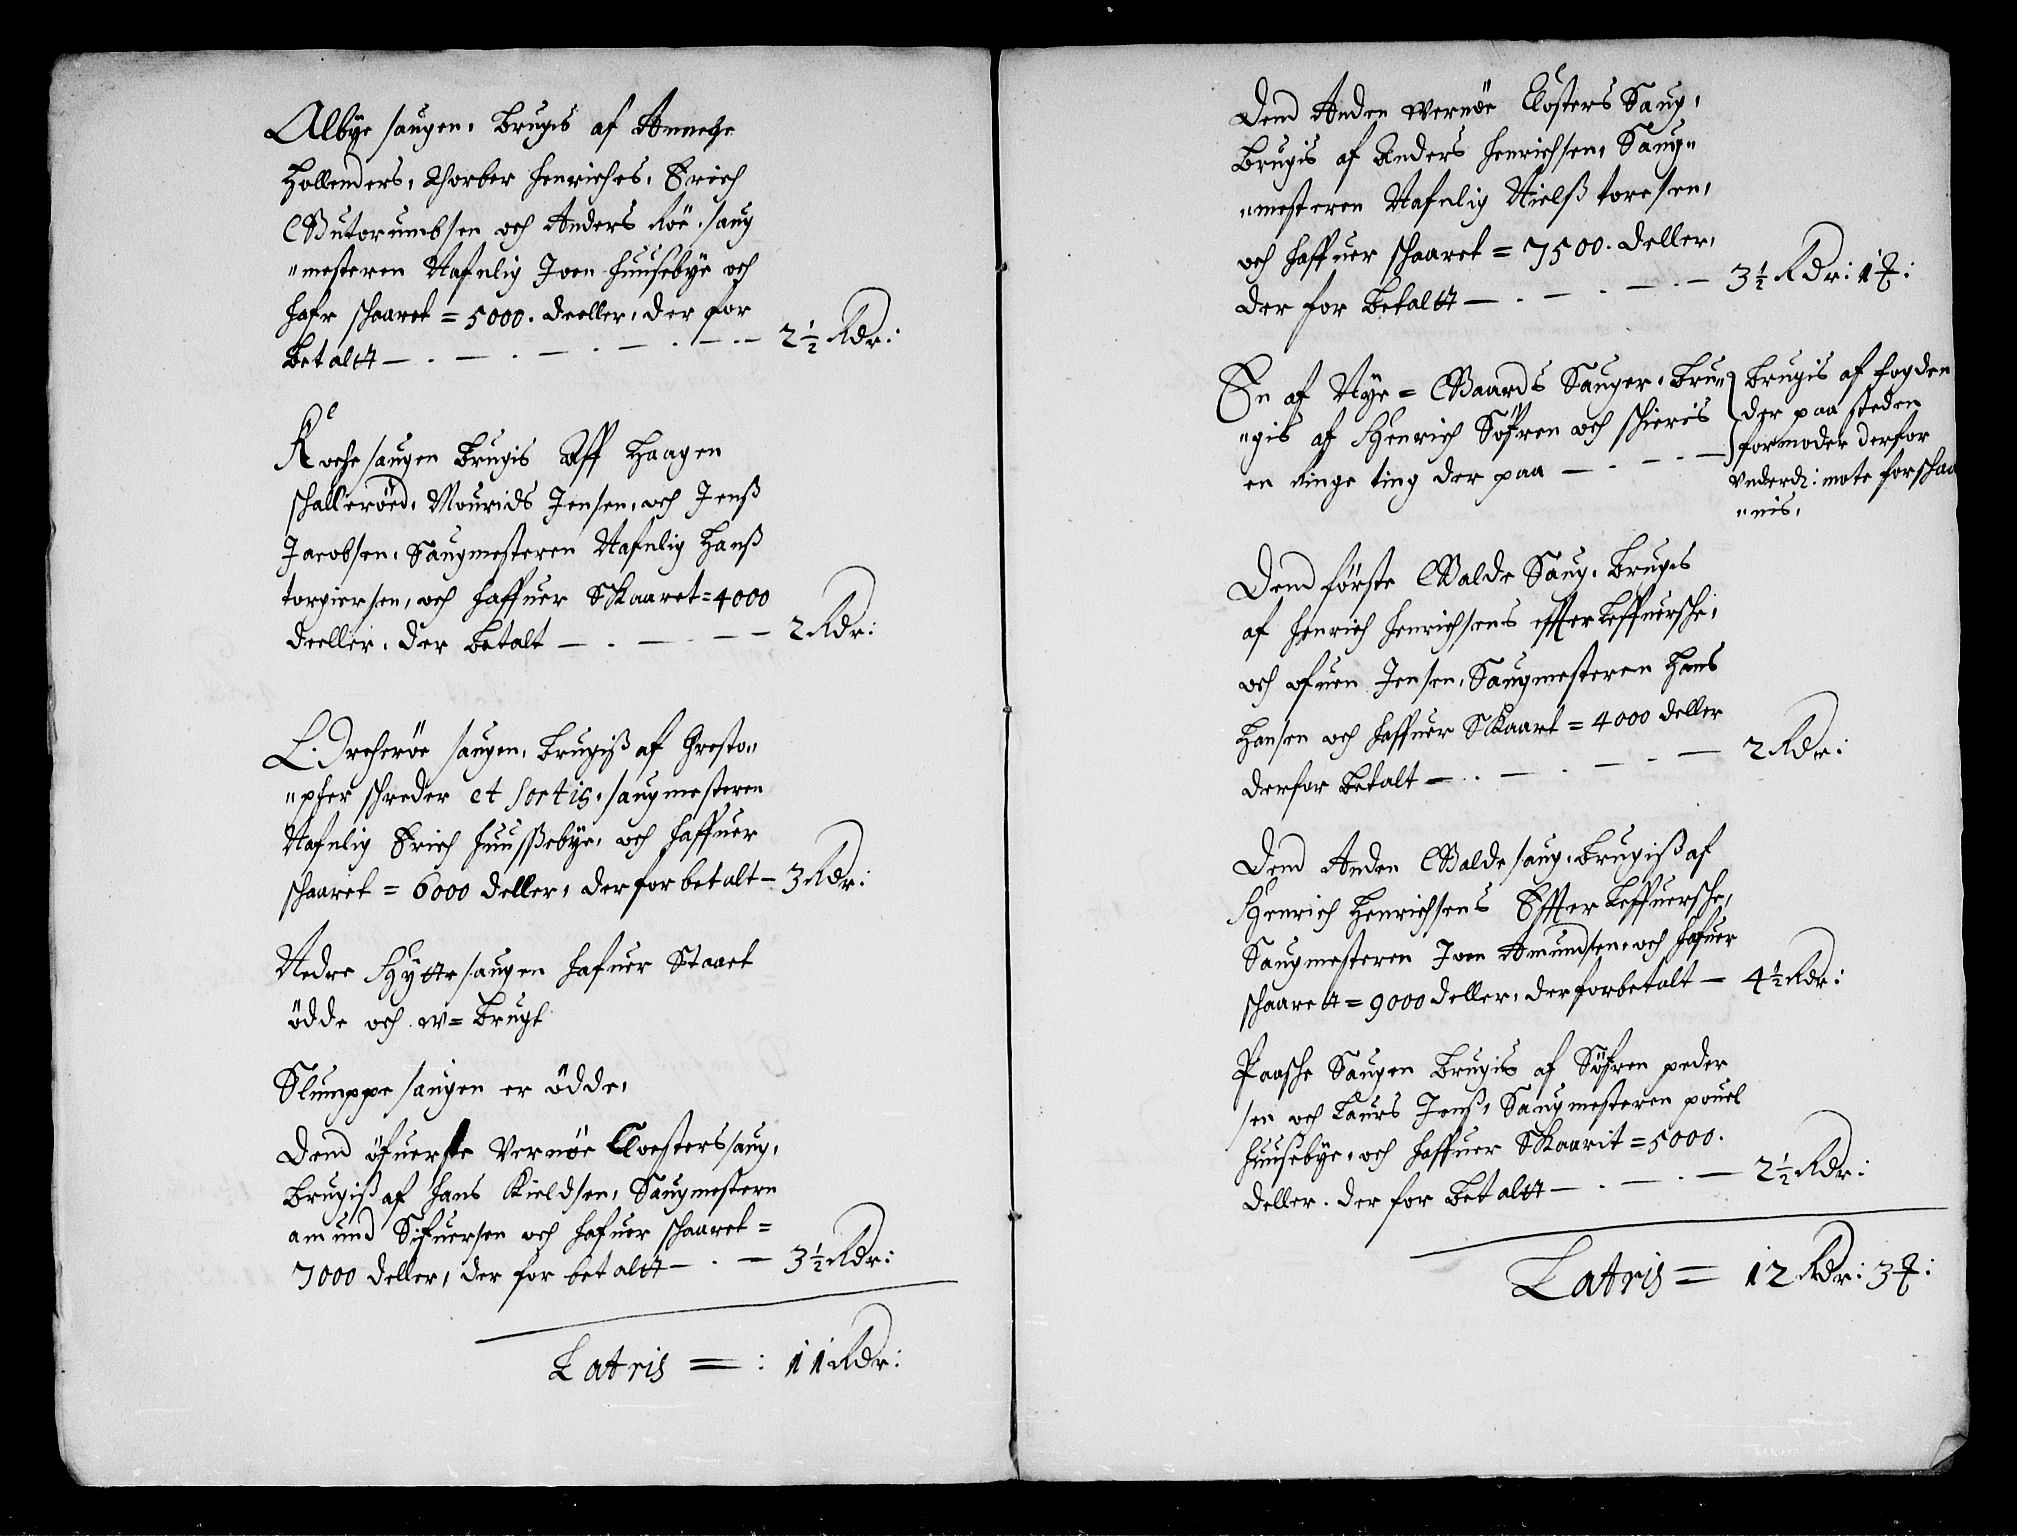 Albye saugen, Brugis af Anneche
Hollenders, Thorber Henriches, Erich
Gutorumbsen och Anders Röe, saug
"mesteren Nafnlig Iven Huusebye och
Hafr schaaret = 5000. deeller, der for
Betaltt — . — . — . — . — . — 2½ Rdr:
Roche saugen Brugis Aff Haagen
schalleröed, Mourids Jensen, och Jenß
Jacobsen, Saugmesteren Nafnlig Hanß
torgiersen, och Haffuer Skaaret = 4000
deeller, der Betalt — . — . — — 2 Rdr:
L. Drecheröe saugen, Brugiß af Chresto"
"pfer schreder et Sortis, saugmesteren
Nafnlig Erich Huussebye, och Haffuer
schaaret = 6000 deller, der for betalt — 3 Rdr:
Nedre Hyttesaugen Hafuer Staaet
ödde och w= Brugt
Slumppe saugen er ödde,
Dend öfuerste Vernöe Closters saug,
Brugiß af Hans Kieldsen, Saugmestern
amund Sifuersen och Hafuer schaaret =
7000 deller, der for betaltt — . — 3½ Rdr:
Latris = : 11 Rdr:
Dend Anden Wernöe Closters Saug,
Brugis af Anders Henrichsen, Saug"
"mesteren Nafnlig Nielß toresen,
och Haffuer schaaret = 7500. deller,
der for Betaltt — . — . — . — 3½ Rdr: 1 ℔:
En af Nye = Gaards Sauger, Bru"
"gis af Henrich Söfren och schieris
en Ringe ting der paa — . — . —
Brugis af fogden
der paa steden
formoder derfor
Vnderd: mote forschaa
"nis,
Dend förste Walde Saug, Brugis
af Henrich Henrichsens effterleffuersche,
och ofuen Jensen, Saugmesteren Hans
Hansen och Haffuer Skaart = 4000 deller
derfor Betalt — . — . — . — 2 Rdr:
Dend Anden Walde saug, Brugiß af
Henrich Henrichsens Effterleffuersche,
Saugmesteren Iven Amundsen, och Hafuer
schaarett = 9000 deller, der for betalt — 4½ Rdr:
Paasche Saugen Brugis af Söfren peder
sen och Laurs Jenß, Saugmesteren pouel
Huusebye, och Haffuer Skaarit = 5000.
deller. der for Betaltt — . — . — 2½ Rdr:
Latris = 12 Rdr: 3 ℔: